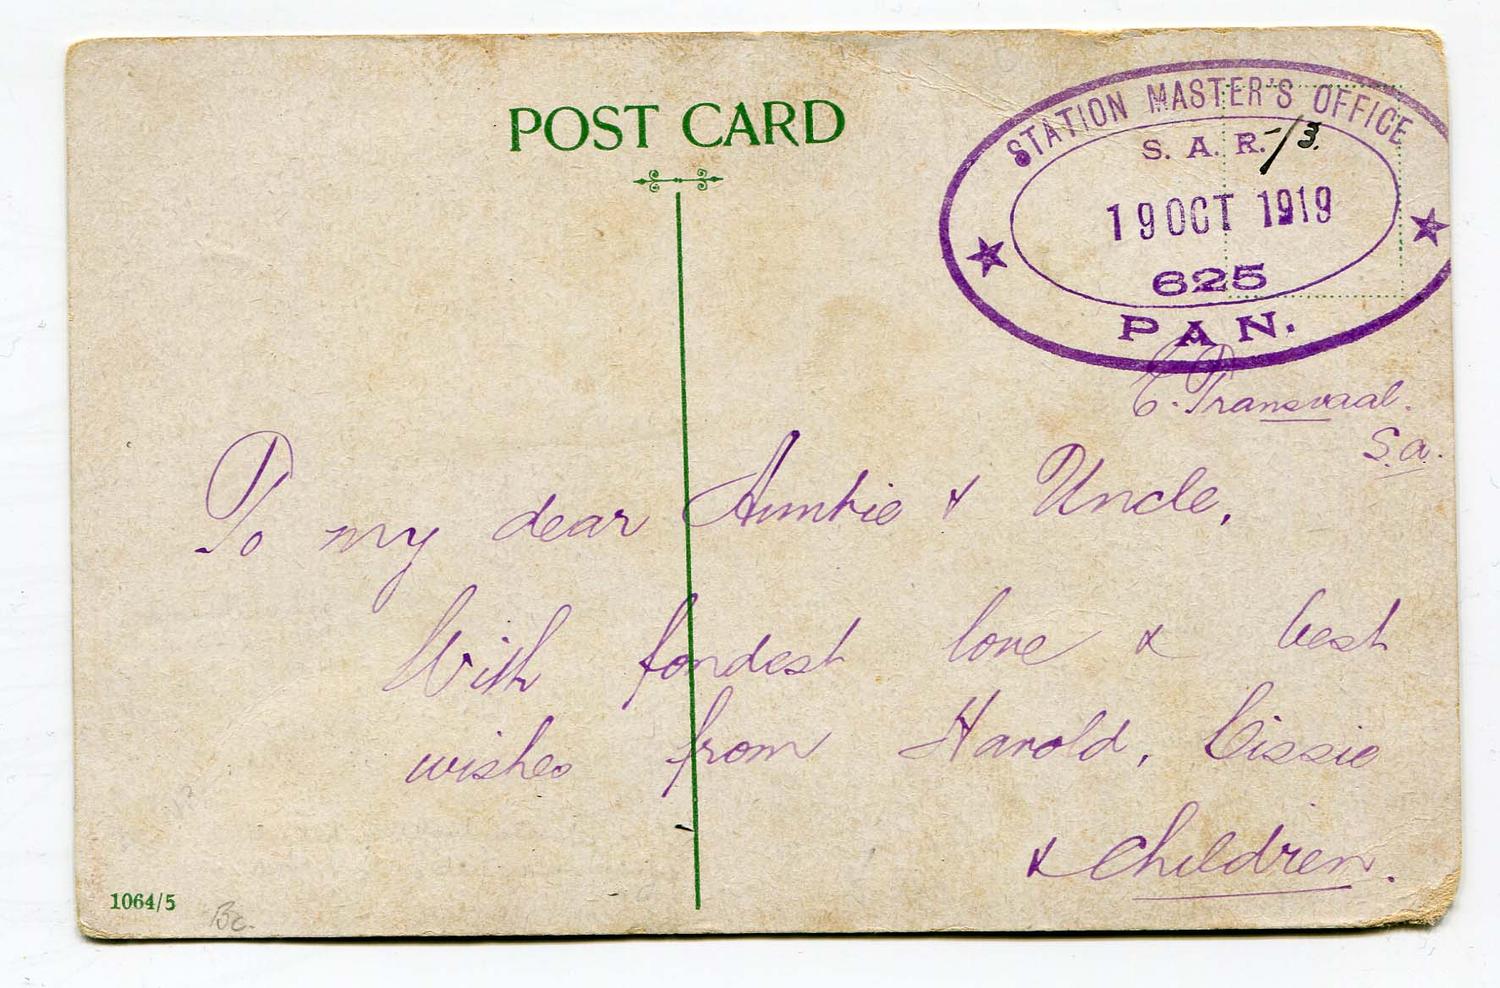 POST CARD
STATION MASTER'S OFFICE
S. A. R. -/3.
19 OCT 1919
625
PAN.
E. Transvaal.
S.A.
To my dear Auntie & Uncle,
With fondest love & best
wishes from Harold, Cissie
& Children.
1064/5
Bc.